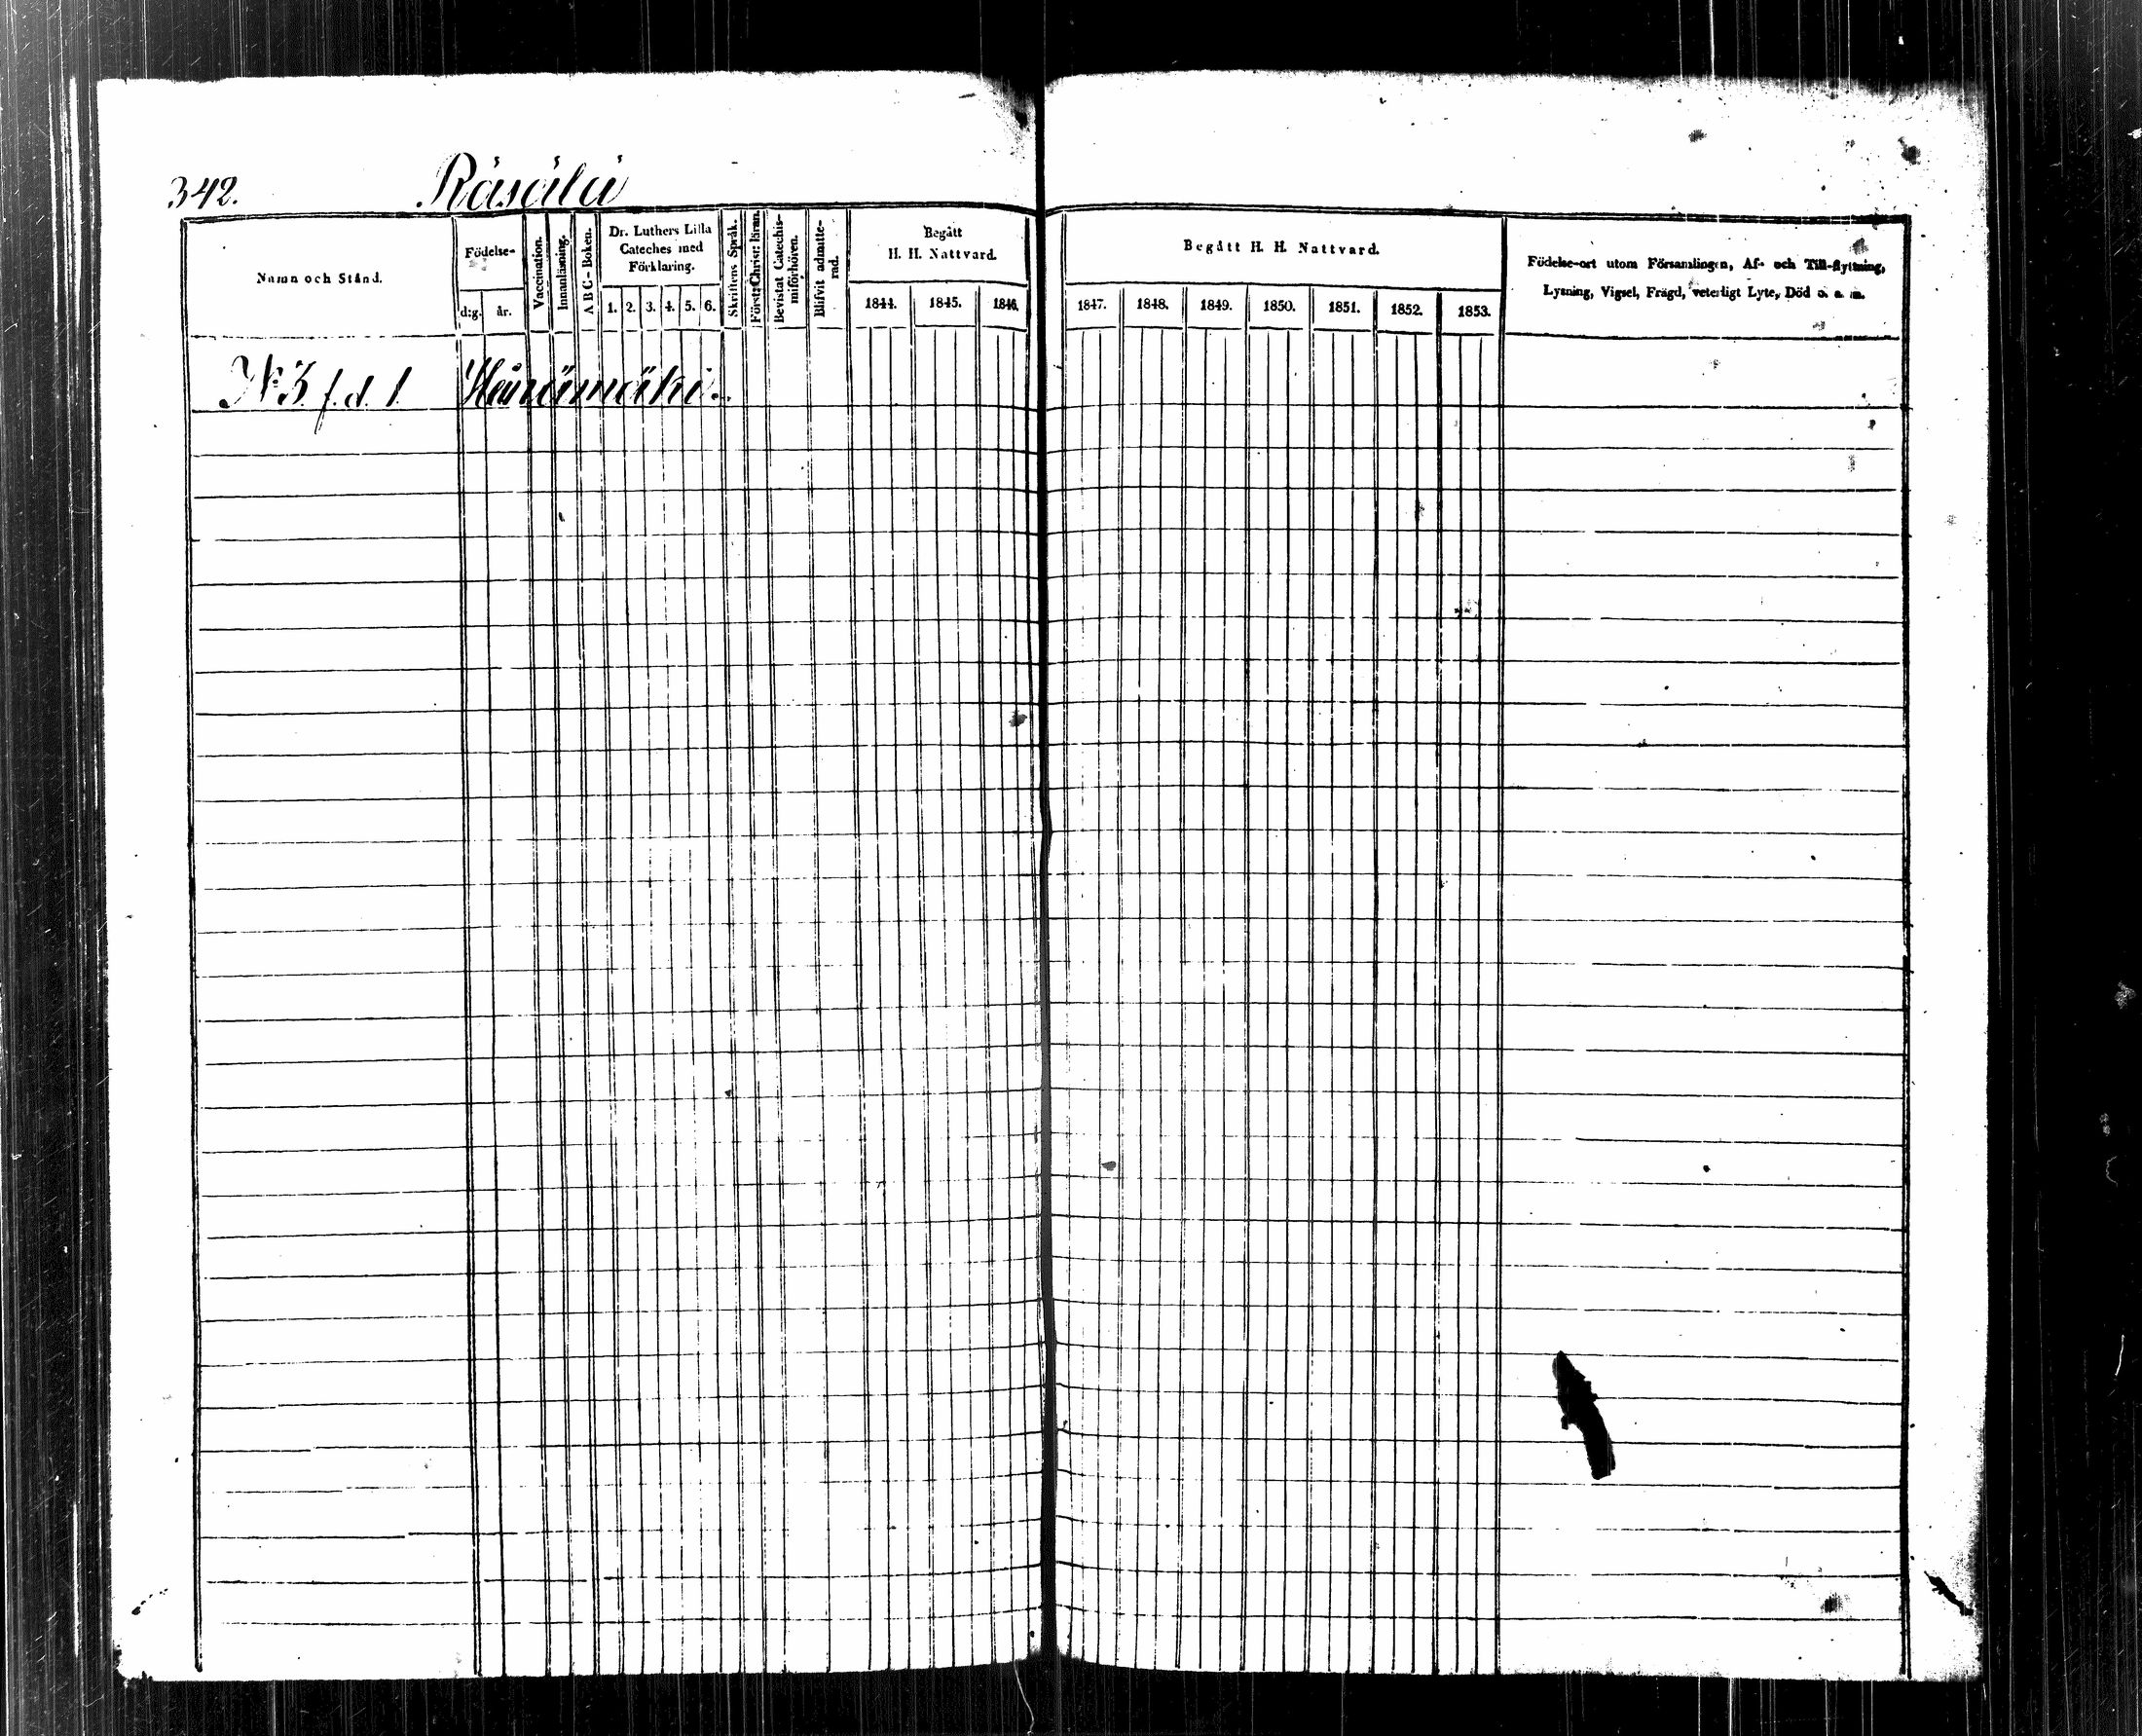 342. Räsälä
Namn och Stånd.
Födelse-
d:g. år.
Vaccination.
Innanläsning.
A B C - Boken.
Dr. Luthers Lilla
Cateches med
Förklaring.
1. 2. 3. 4. 5. 6.
Skriftens Språk.
Först: Christ: läran.
Bevistat Catechis-
miförhören.
Blifvit admitte-
rad.
Begått
H. H. Nattvard.
1844. 1845. 1846.
Begått H. H. Nattvard.
1847. 1848. 1849. 1850. 1851. 1852. 1853.
Födelse-ort utom Församlingen, Af- och Till-flyttning,
Lysning, Vigsel, Frägd, veterligt Lyte, Död o. s. m.
No 3 f. d. 1